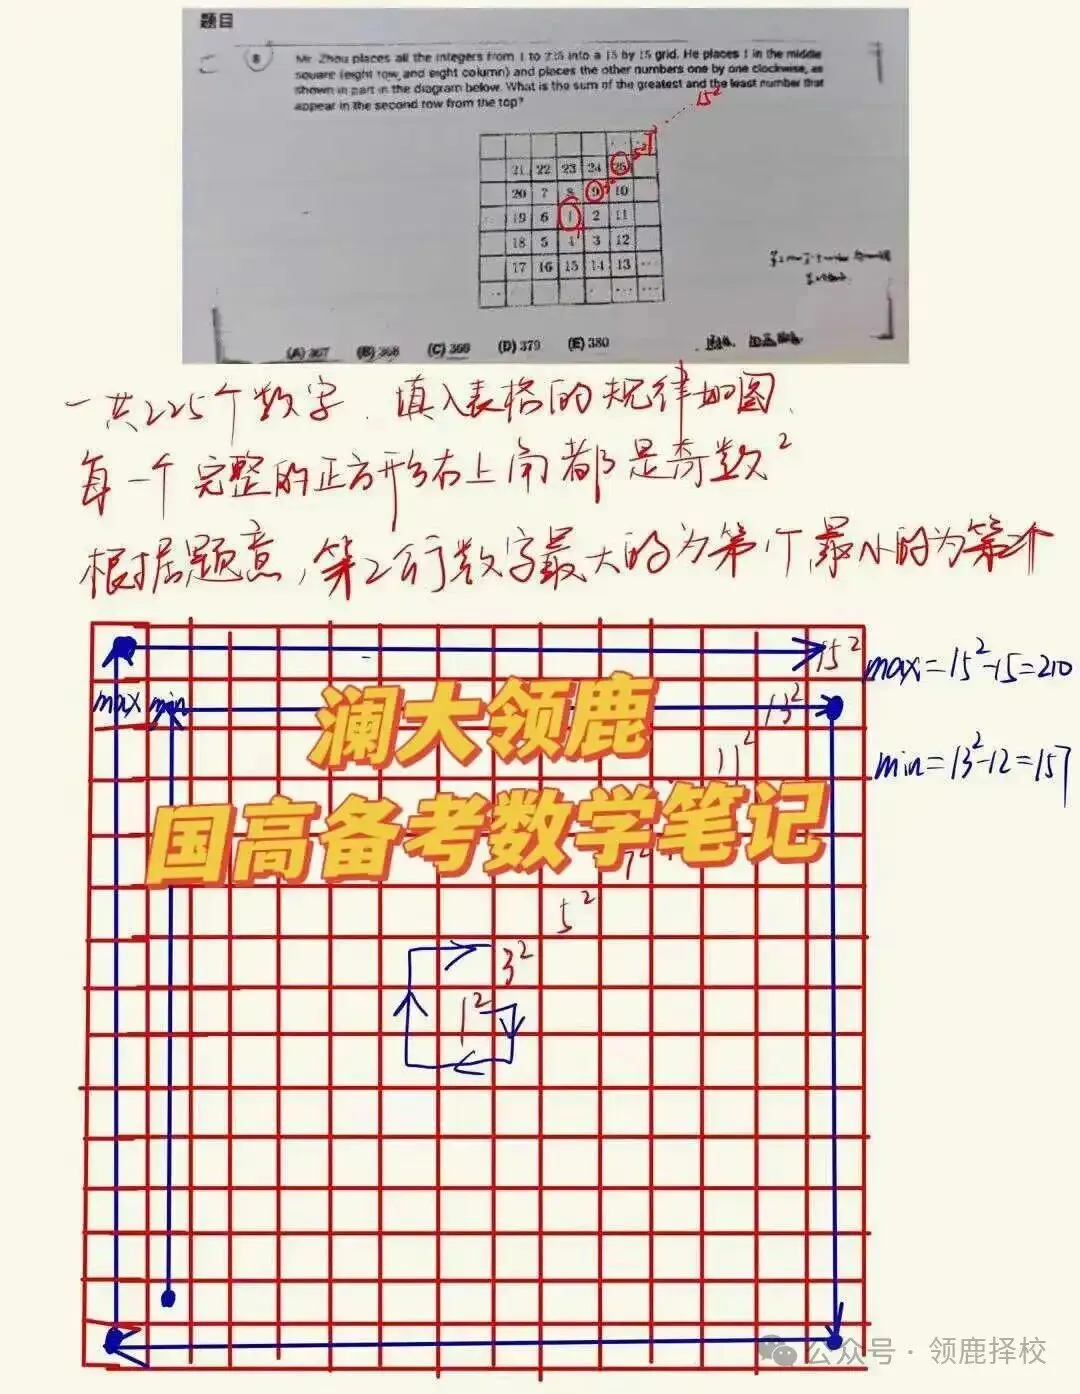 题目
8 Mr. Zhou places all the integers from 1 to 225 into a 15 by 15 grid. He places 1 in the middle
square (eight row, and eight column) and places the other numbers one by one clockwise, as
shown in part in the diagram below. What is the sum of the greatest and the least number that
appear in the second row from the top?
15²
21 22 23 24 25
20 7 8 9 10
19 6 1 2 11
18 5 4 3 12
17 16 15 14 13 ...
(A) 367 (B) 368 (C) 369 (D) 379 (E) 380
一共225个数字．填入表格的规律如图．
每一个完整的正方形右上角都是奇数²
根据题意，第2行数字最大的为第1个,最小的为第2个
15² max=15²-15=210
max min 13²
11² min=13²-12=157
澜大领鹿
国高备考数学笔记
7²
5²
3²
1²
公众号·领鹿择校